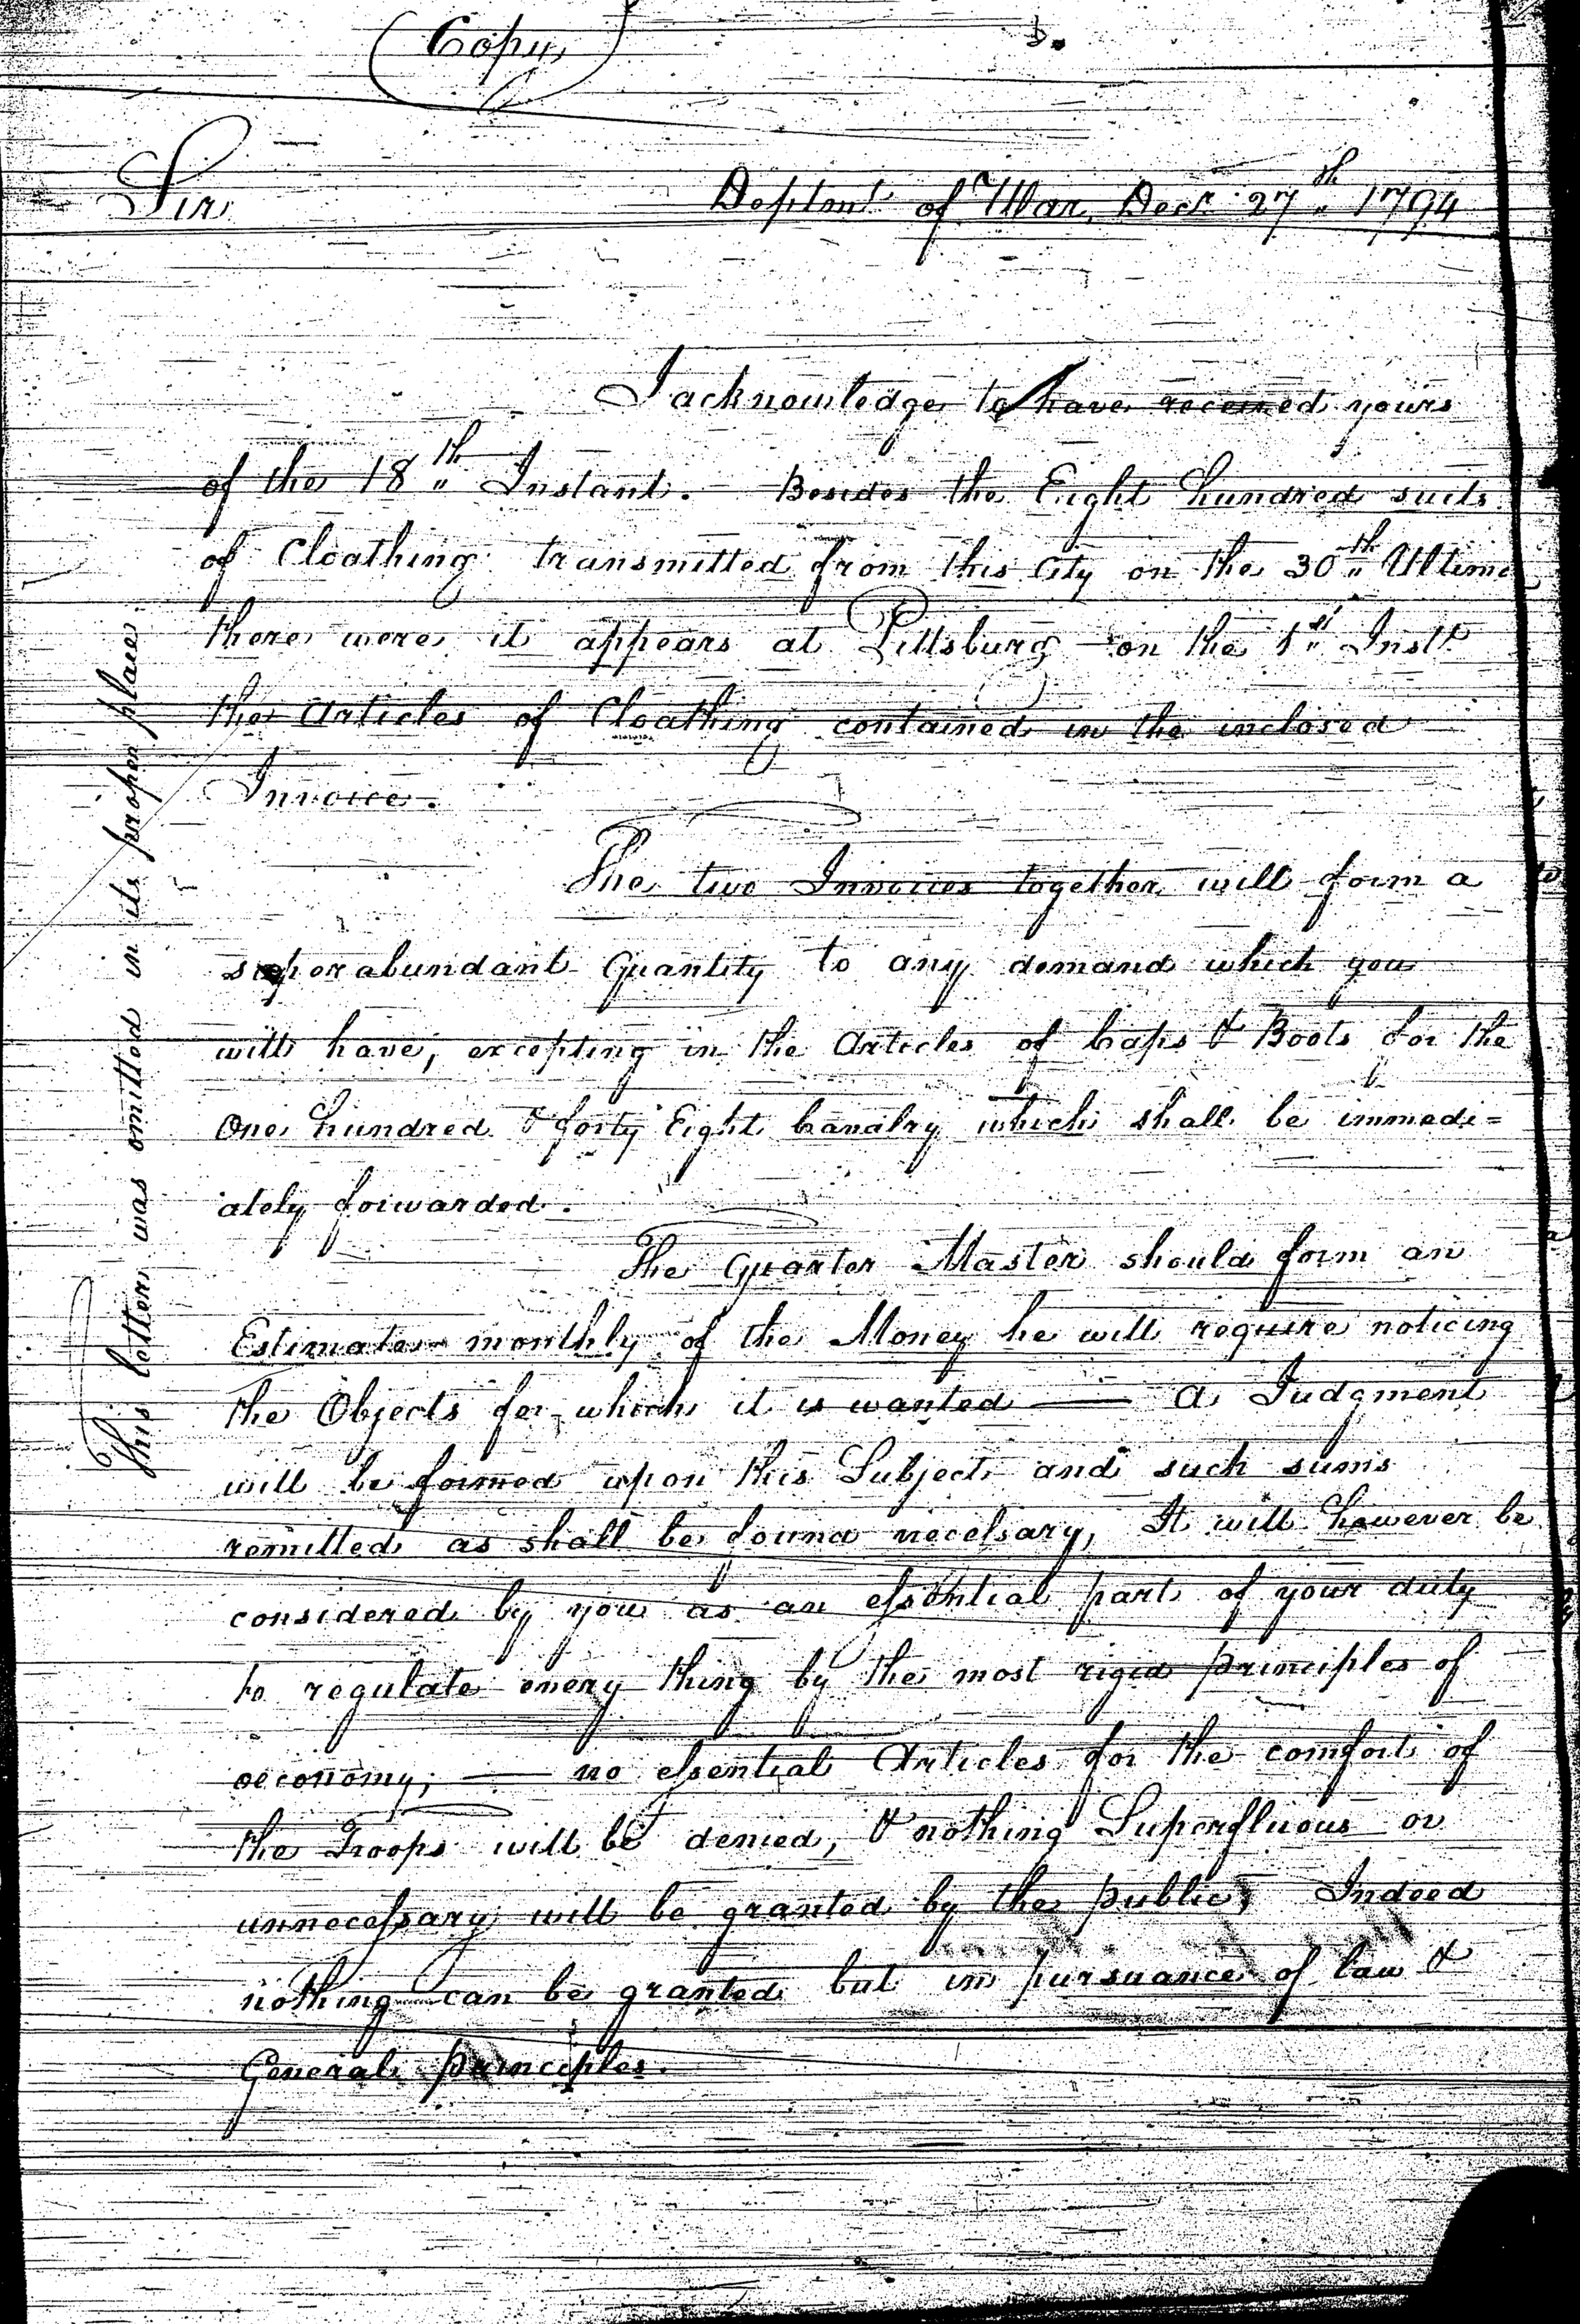 (Copy)
Sir
Deptmt of War, Decr 27th 1794
I acknowledge to have received yours
of the 18th Instant. Besides the Eight hundred suits
of Cloathing transmitted from this City on the 30th Ultimo
there were it appears at Pittsburg on the 1st Instt
the Articles of Cloathing contained in the inclosed
Invoice.
The two Invoices together will form a
superabundant Quantity to any demand which you
will have, excepting in the Articles of Caps & Boots for the
One hundred & forty Eight Cavalry which shall be immedi=
ately forwarded.
The Quarter Master should form an
Estimate monthly of the Money he will require noticing
the Objects for which it is wanted — A Judgment
will be formed upon this Subject and such sums
remitted as shall be found necessary, It will however be
considered by you as an essential part of your duty
to regulate every thing by the most rigid principles of
oeconomy; — no essential Articles for the comfort of
the Troops will be denied, & nothing Superfluous or
unnecessary will be granted by the public; Indeed
nothing can be granted but in pursuance of law &
General principles.
This letter was omitted in its proper place